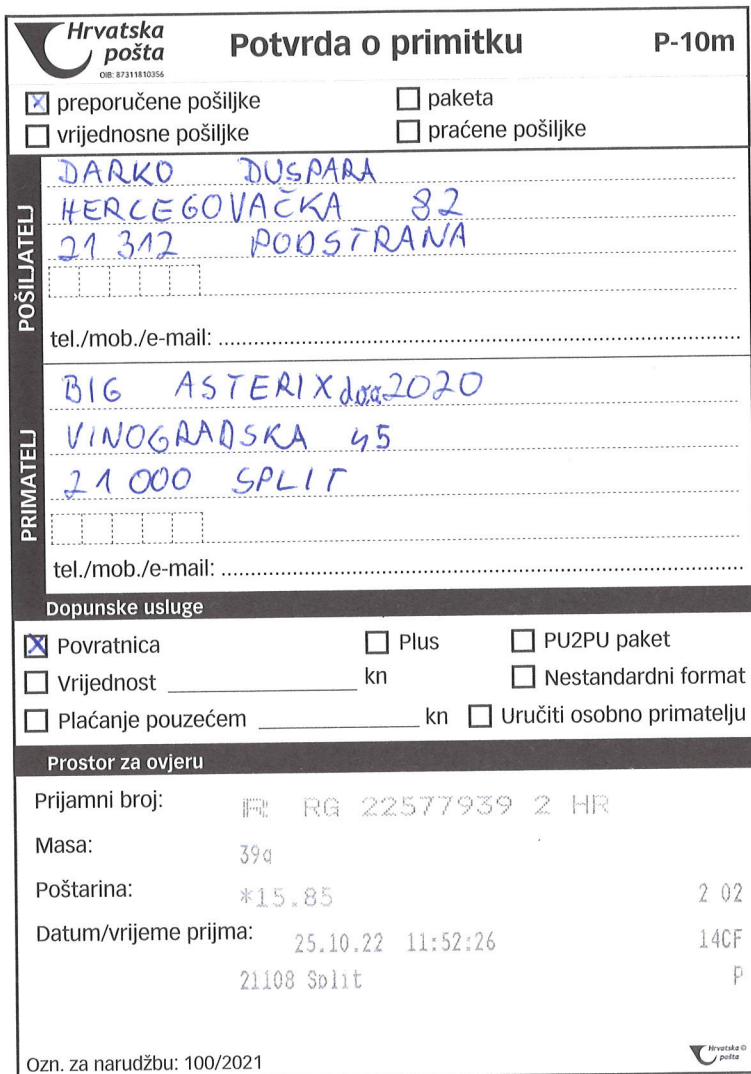 Hrvatska pošta
OIB: 87311810356
Potvrda o primitku
P-10m
preporučene pošiljke
paketa
vrijednosne pošiljke
praćene pošiljke
POŠILJATELJ
DARKO DUSPARA
HERCEGOVAČKA 82
21 312 PODSTRANA
tel./mob./e-mail:
PRIMATELJ
BIG ASTERIX d.o.o. 2020
VINOGRADSKA 45
21 000 SPLIT
tel./mob./e-mail:
Dopunske usluge
Povratnica
Plus
PU2PU paket
Vrijednost kn
Nestandardni format
Plaćanje pouzećem kn
Uručiti osobno primatelju
Prostor za ovjeru
Prijamni broj: R RG 22577939 2 HR
Masa: 39g
Poštarina: *15.85 2 02
Datum/vrijeme prijma: 25.10.22 11:52:26 14CF
21108 Split P
Ozn. za narudžbu: 100/2021
Hrvatska pošta